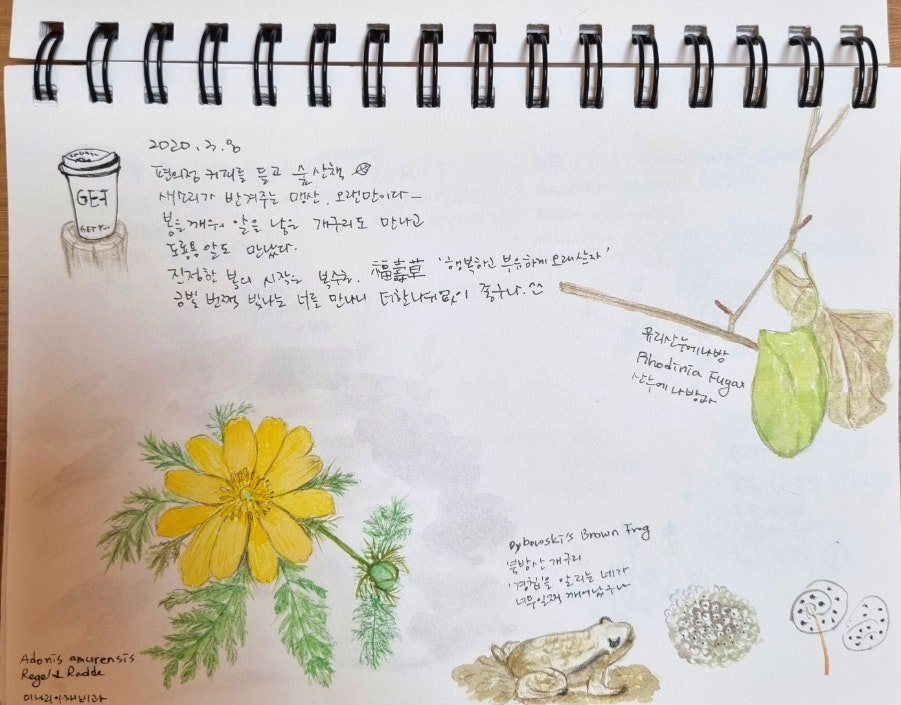 2020. 3. 8
편의점 커피를 들고 숲 산책
새소리가 반겨주는 맹산, 오랜만이다-
봄을 깨워 알을 낳은 개구리도 만나고
도롱뇽 알도 만났다.
진정한 봄의 시작은 복수초. 福壽草 '행복하고 부유하게 오래살자'
금빛 번쩍 빛나는 너를 만나니 더할나위없이 좋구나.^^
GET
GET
유리산누에나방
Rhodinia Fugax
산누에나방과
Dybowski's Brown Frog
북방산개구리
'경칩'을 알리는 네가
너무일찍 깨어났구나
Adonis amurensis
Regel & Radde
미나리아재비과